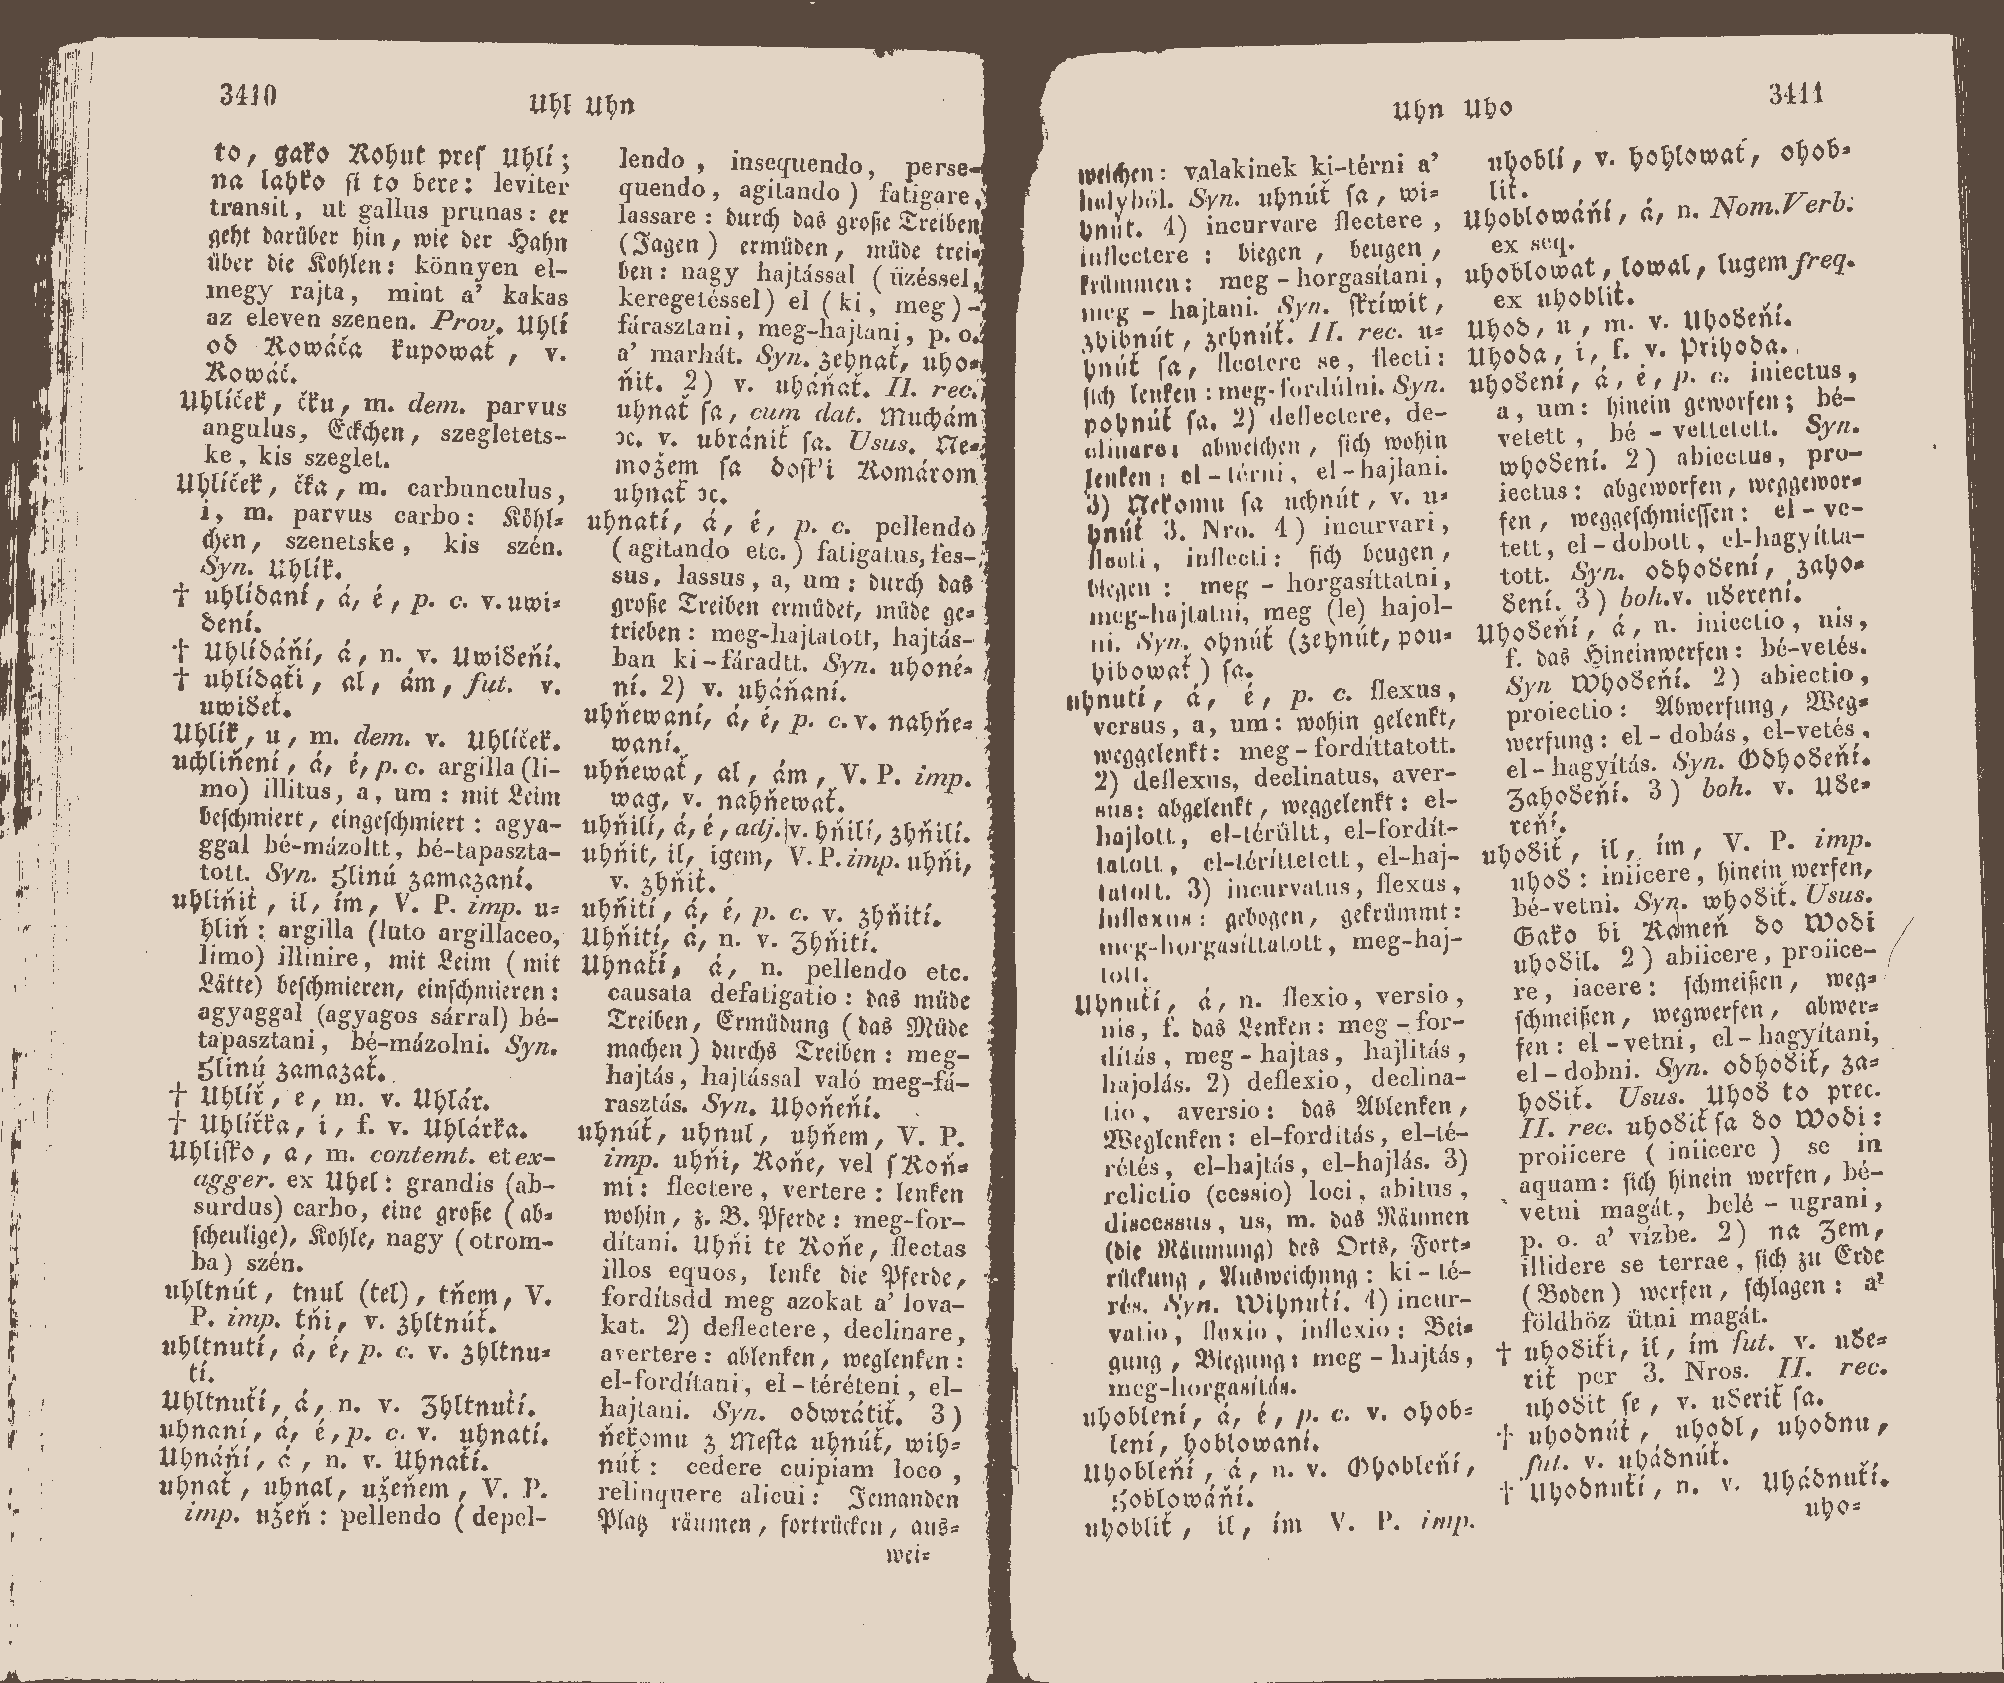 3410
Uhl Uhn
to, gako Kohut pres Uhlí;
na lahko si to bere: leviter
transit, ut gallus prunas: er
geht darüber hin, wie der Hahn
über die Kohlen: könnyen el-
megy rajta, mint a' kakas
az eleven szenen. Prov. Uhlí
od Kowáča kupowať, v.
Kowáč.
Uhlíček, čku, m. dem. parvus
angulus, Eckchen, szegletets-
ke, kis szeglet.
Uhlíček, čka, m. carbunculus,
i, m. parvus carbo: Köhl=
chen, szenetske, kis szén.
Syn. Uhlík.
† uhlídaní, á, é, p. c. v. uwi=
ďení.
† Uhlídáňí, á, n. v. Uwiďeňí.
† uhlídaťi, al, ám, fut. v.
uwiďeť.
Uhlík, u, m. dem. v. Uhlíček.
uchliňení, á, é, p. c. argilla (li-
mo) illitus, a, um: mit Leim
beschmiert, eingeschmiert: agya-
ggal bé-mázoltt, bé-tapaszta-
tott. Syn. Hlinú zamazaní.
uhliňiť, il, ím, V. P. imp. u=
hliň: argilla (luto argillaceo,
limo) illinire, mit Leim (mit
Lätte) beschmieren, einschmieren:
agyaggal (agyagos sárral) bé-
tapasztani, bé-mázolni. Syn.
Hlinú zamazať.
† Uhlíř, e, m. v. Uhlár.
† Uhlířka, i, f. v. Uhlárka.
Uhlisko, a, m. contemt. et ex-
agger. ex Uhel: grandis (ab-
surdus) carbo, eine große (ab=
scheulige), Kohle, nagy (otrom-
ba) szén.
uhltnút, tnul (tel), tňem, V.
P. imp. tňi, v. zhltnúť.
uhltnutí, á, é, p. c. v. zhltnu=
tí.
Uhltnuťí, á, n. v. Zhltnuťí.
uhnaní, á, é, p. c. v. uhnatí.
Uhnáňí, á, n. v. Uhnaťí.
uhnať, uhnal, užeňem, V. P.
imp. užeň: pellendo (depel-
lendo, insequendo, perse-
quendo, agitando) fatigare,
lassare: durch das große Treiben
(Jagen) ermüden, müde trei=
ben: nagy hajtással (üzéssel,
keregetéssel) el (ki, meg)-
fárasztani, meg-hajtani, p. o.
a' marhát. Syn. zehnať, uho=
ňit. 2) v. uháňať. II. rec.
uhnať sa, cum dat. Muchám
ꝛc. v. ubrániť sa. Usus. Ne=
možem sa dosť'i Komárom
uhnať ꝛc.
uhnatí, á, é, p. c. pellendo
(agitando etc.) fatigatus, fes-
sus, lassus, a, um: durch das
große Treiben ermüdet, müde ge=
trieben: meg-hajtatott, hajtás-
ban ki-fáradtt. Syn. uhoné=
ní. 2) v. uháňaní.
uhňewaní, á, é, p. c. v. nahňe=
waní.
uhňewať, al, ám, V. P. imp.
wag, v. nahňewať.
uhňilí, á, é, adj. v. hňilí, zhňilí.
uhňit, il, igem, V. P. imp. uhňi,
v. zhňiť.
uhňití, á, é, p. c. v. zhňití.
Uhňití, á, n. v. Zhňití.
Uhnaťí, á, n. pellendo etc.
causata defatigatio: das müde
Treiben, Ermüdung (das Müde
machen) durchs Treiben: meg-
hajtás, hajtással való meg-fá-
rasztás. Syn. Uhoňeňí.
uhnúť, uhnul, uhňem, V. P.
imp. uhňi, Koňe, vel s Koň=
mi: flectere, vertere: lenken
wohin, z. B. Pferde: meg-for-
dítani. Uhňi te Koňe, flectas
illos equos, lenke die Pferde,
fordítsdd meg azokat a' lova-
kat. 2) deflectere, declinare,
avertere: ablenken, weglenken:
el-fordítani, el-téréteni, el-
hajtani. Syn. odwrátiť. 3)
ňekomu z Mesta uhnúť, wih=
núť: cedere cuipiam loco,
relinquere alicui: Jemanden
Platz räumen, fortrücken, aus=
wei=
Uhn Uho
3411
weichen: valakinek ki-térni a'
helyböl. Syn. uhnúť sa, wi=
hnúť. 4) incurvare flectere,
inflectere: biegen, beugen,
krümmen: meg-horgasítani,
meg-hajtani. Syn. skríwit,
zhibnút, zehnúť. II. rec. u=
hnúť sa, flectere se, flecti:
sich lenken: meg-fordúlni. Syn.
pohnúť sa. 2) deflectere, de-
clinare: abweichen, sich wohin
lenken: el-térni, el-hajlani.
3) Ňekomu sa uchnút, v. u=
hnúť 3. Nro. 4) incurvari,
flecti, inflecti: sich beugen,
biegen: meg-horgasíttatni,
meg-hajtatni, meg (le) hajol-
ni. Syn. ohnúť (zehnút, pou=
hibowať) sa.
uhnutí, á, é, p. c. flexus,
versus, a, um: wohin gelenkt,
weggelenkt: meg-fordíttatott.
2) deflexus, declinatus, aver-
sus: abgelenkt, weggelenkt: el-
hajlott, el-térültt, el-fordít-
tatott, el-téríttetett, el-haj-
tatott. 3) incurvatus, flexus,
inflexus: gebogen, gekrümmt:
meg-horgasíttatott, meg-haj-
tott.
Uhnuťí, á, n. flexio, versio,
nis, f. das Lenken: meg-for-
dítás, meg-hajtas, hajlitás,
hajolás. 2) deflexio, declina-
tio, aversio: das Ablenken,
Weglenken: el-fordítás, el-té-
rétés, el-hajtás, el-hajlás. 3)
relictio (cessio) loci, abitus,
discessus, us, m. das Räumen
(die Räumung) des Orts, Fort=
rückung, Ausweichung: ki-té-
rés. Syn. Wihnuťí. 4) incur-
vatio, flexio, inflexio: Bei=
gung, Biegung: meg-hajtás,
meg-horgasítás.
uhoblení, á, é, p. c. v. ohob=
lení, hoblowaní.
Uhobleňí, á, n. v. Ohobleňí,
Hoblowáňí.
uhobliť, il, ím V. P. imp.
uhoblí, v. hohlowať, ohob=
liť.
Uhoblowáňí, á, n. Nom. Verb.
ex seq.
uhoblowat, lowal, lugem freq.
ex uhobliť.
Uhod, u, m. v. Uhoďeňí.
Uhoda, i, f. v. Prihoda.
uhoďení, á, é, p. c. iniectus,
a, um: hinein geworfen; bé-
vetett, bé-vettetett. Syn.
whoďení. 2) abiectus, pro-
iectus: abgeworfen, weggewor=
fen, weggeschmiessen: el-ve-
tett, el-dobott, el-hagyítta-
tott. Syn. odhoďení, zaho=
ďení. 3) boh. v. uďerení.
Uhoďeňí, á, n. iniectio, nis,
f. das Hineinwerfen: bé-vetés.
Syn Whoďeňí. 2) abiectio,
proiectio: Abwerfung, Weg=
werfung: el-dobás, el-vetés,
el-hagyítás. Syn. Odhoďeňí.
Zahoďeňí. 3) boh. v. Uďe=
reňí.
uhoďiť, il, ím, V. P. imp.
uhoď: iniicere, hinein werfen,
bé-vetni. Syn. whoďiť. Usus.
Gako bi Kameň do Woďi
uhoďil. 2) abiicere, proiice-
re, iacere: schmeißen, weg=
schmeißen, wegwerfen, abwer=
fen: el-vetni, el-hagyítani,
el-dobni. Syn. odhoďiť, za=
hoďiť. Usus. Uhoď to prec.
II. rec. uhoďiť sa do Woďi:
proiicere (iniicere) se in
aquam: sich hinein werfen, bé-
vetni magát, belé-ugrani,
p. o. a' vízbe. 2) na Zem,
illidere se terrae, sich zu Erde
(Boden) werfen, schlagen: a'
földhöz ütni magát.
† uhoďiťi, il, ím fut. v. uďe=
riť per 3. Nros. II. rec.
uhoďit se, v. uďeriť sa.
† uhodnúť, uhodl, uhodnu,
fut. v. uhádnúť.
† Uhodnuťí, n. v. Uhádnuťí.
uho=